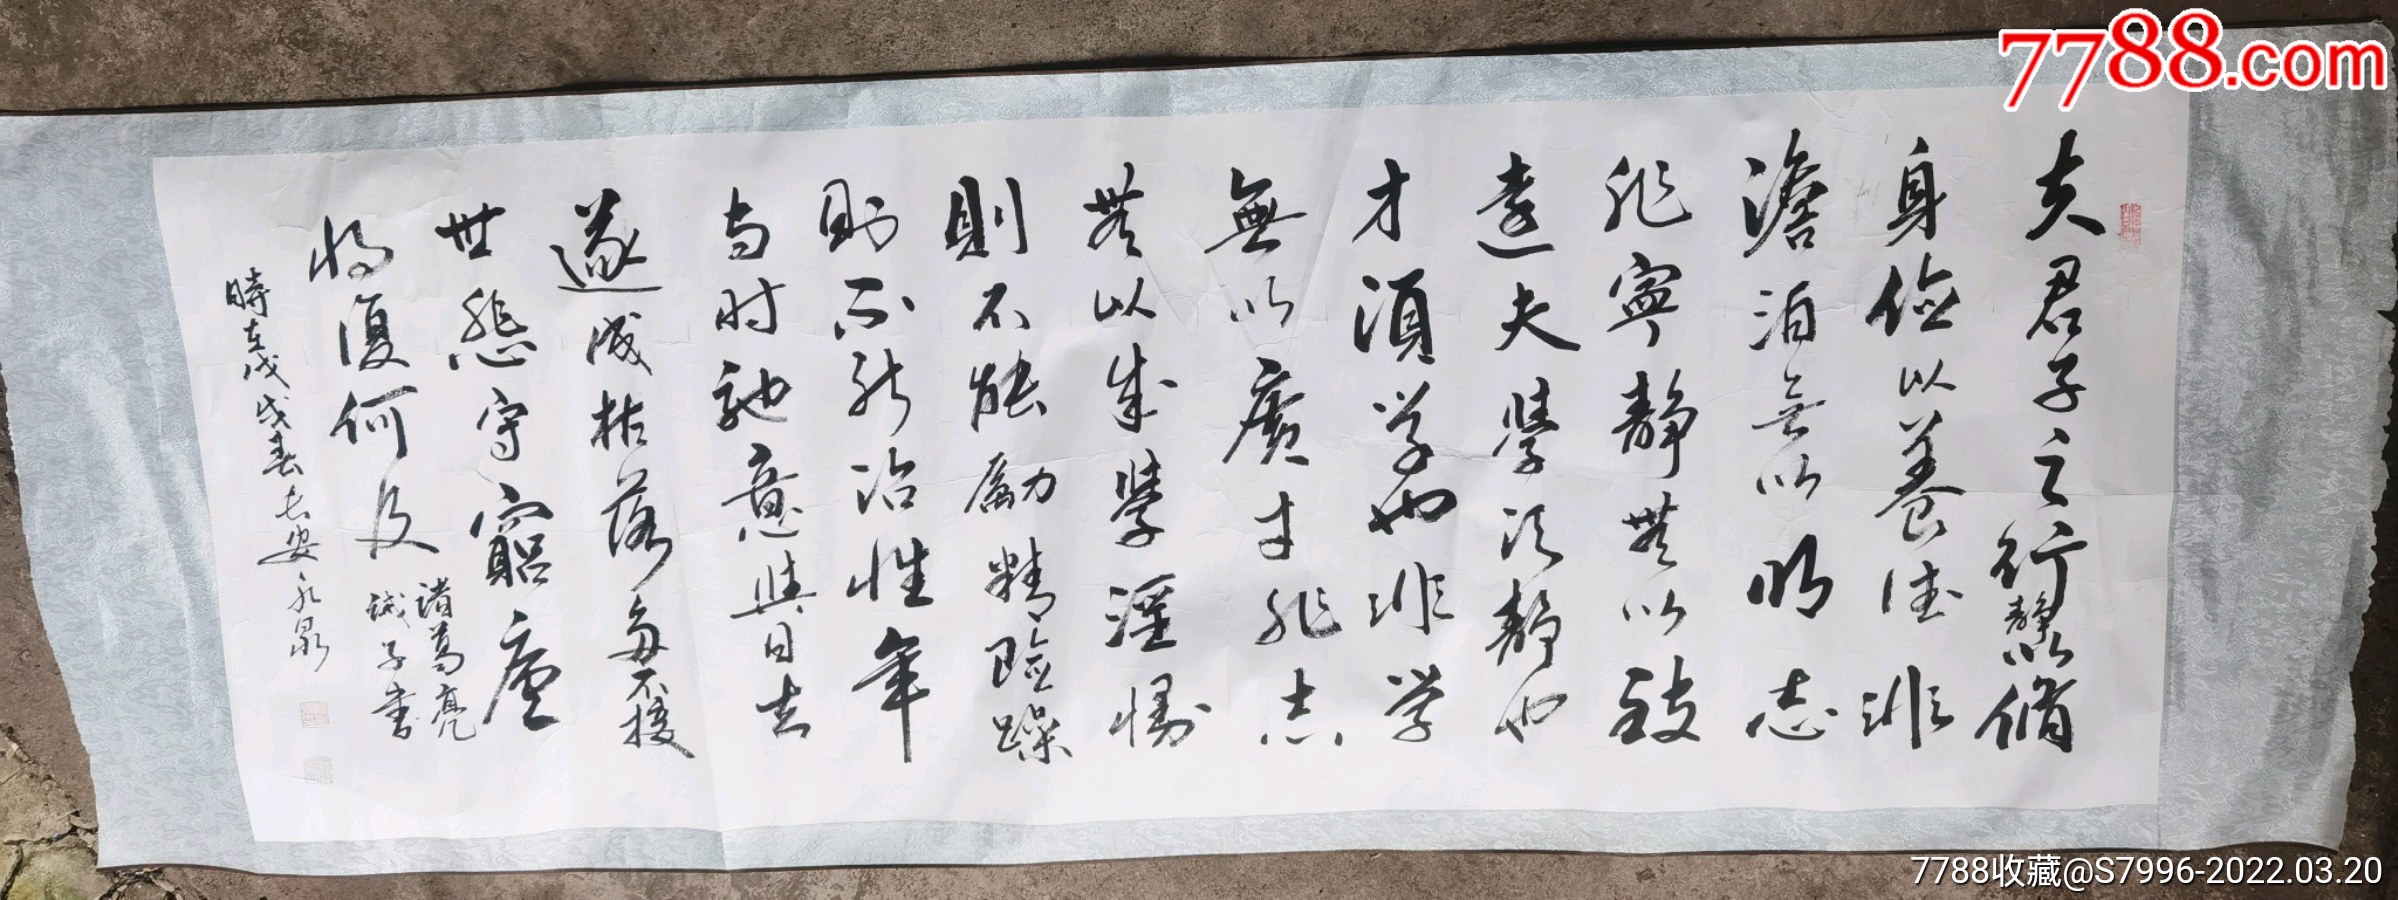 夫君子之行靜以脩
身儉以養德非
澹泊無以明志
非寧靜無以致
遠夫學須靜也
才須学也非学
無以廣才非志
無以成學淫慢
則不能勵精險躁
則不能治性年
与时馳意與日去
遂成枯落多不接
世悲守窮廬
將復何及
諸葛亮
誡子書
時在戊戌春長安永泉
7788.com
7788收藏@S7996-2022.03.20